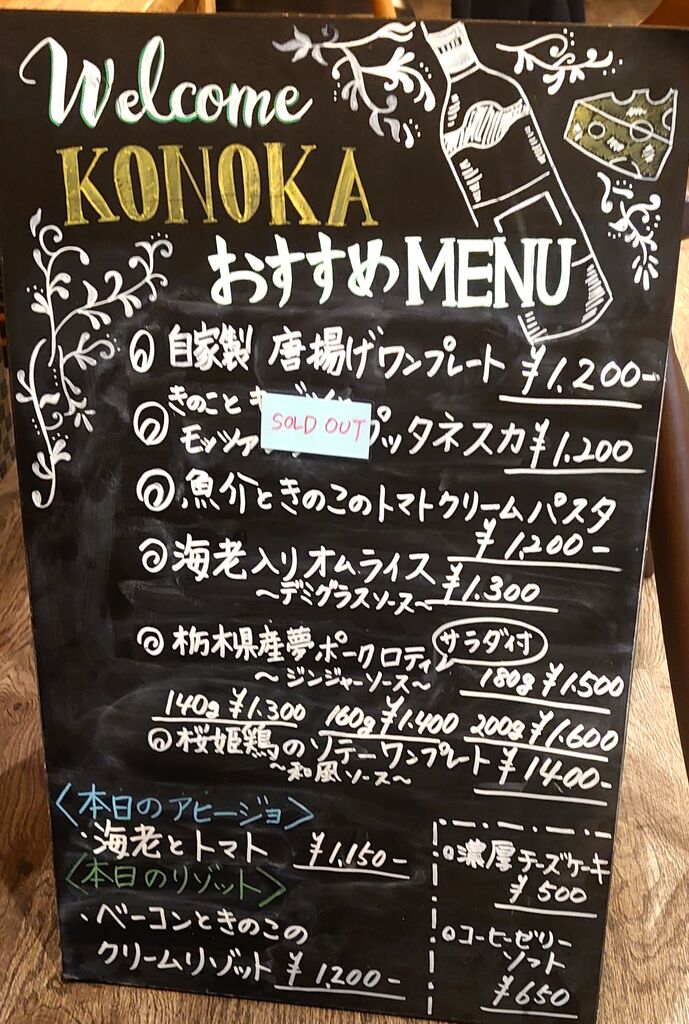 Welcome
KONOKA
おすすめMENU
自家製 唐揚げワンプレート ¥1.200-
きのこと
SOLD OUT
モッツァ プッタネスカ ¥1.200
魚介ときのこのトマトクリームパスタ
¥1.200-
海老入りオムライス
〜デミグラスソース〜 ¥1.300
栃木県産夢ポークロティ サラダ付
〜ジンジャーソース〜 180g ¥1.500
140g ¥1.300 160g ¥1.400 200g ¥1.600
桜姫鶏のソテーワンプレート
〜和風ソース〜 ¥1400-
〈本日のアヒージョ〉
・海老とトマト ¥1,150-
〈本日のリゾット〉
・ベーコンときのこの
クリームリゾット ¥1,200-
濃厚チーズケーキ
¥500
コーヒーゼリー
ソフト
¥650